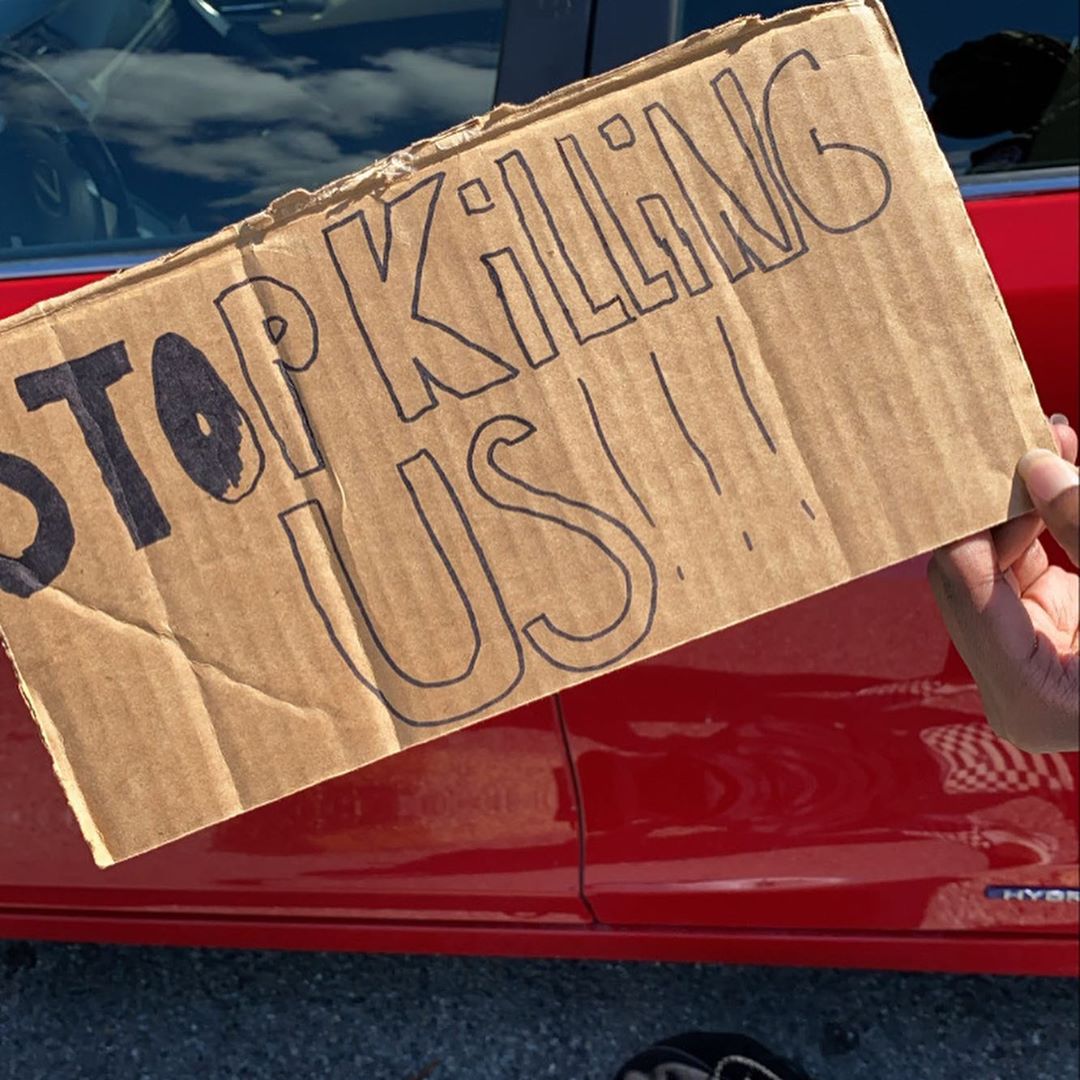 STOP KiLLiNG
US!!!
HYBR